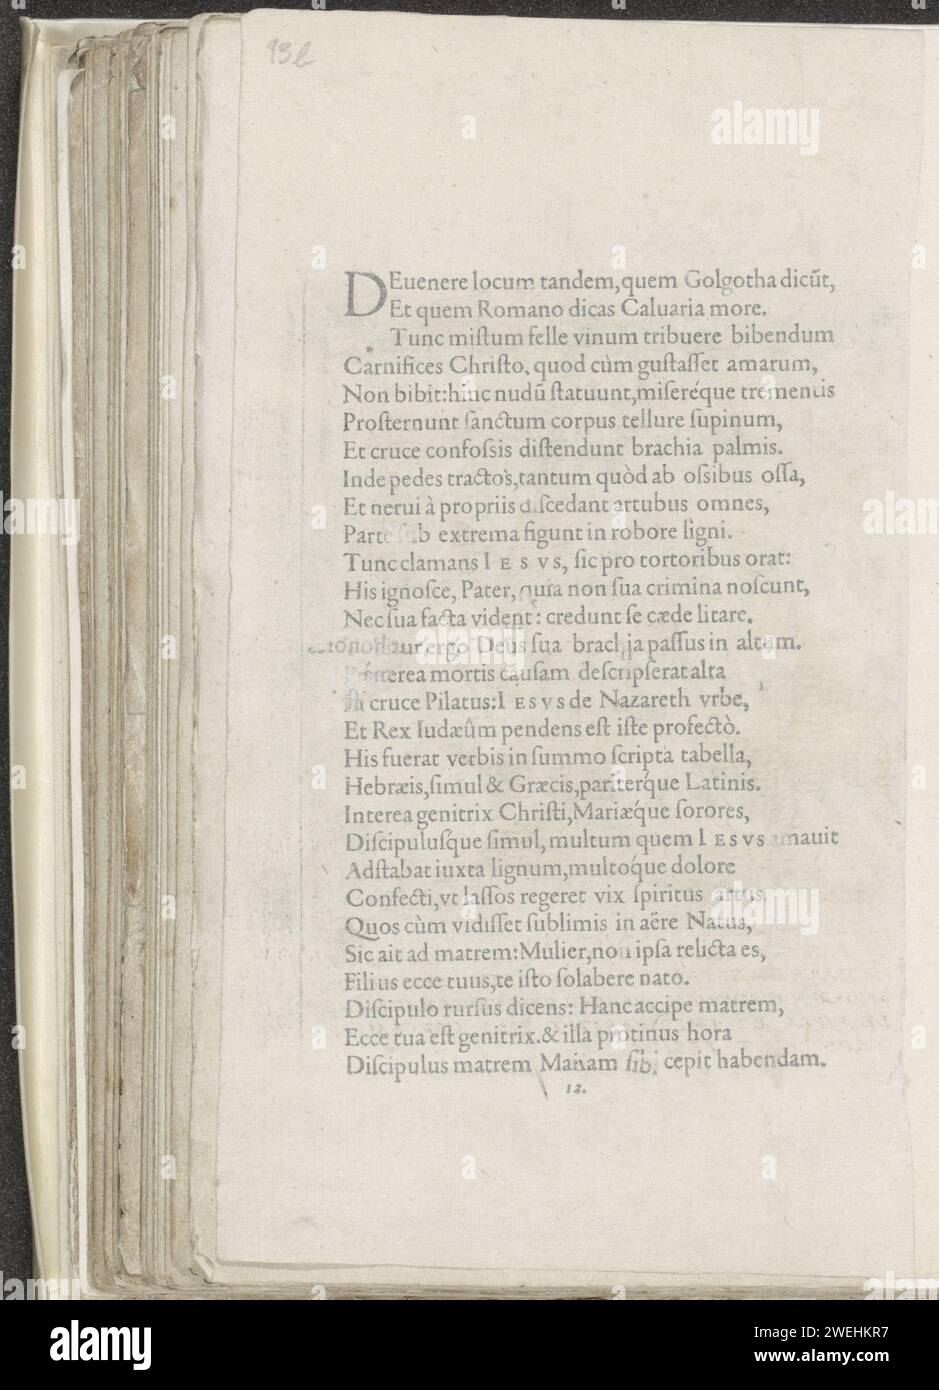 93b
DEuenere locum tandem,quem Golgotha dicũt,
Et quem Romano dicas Caluaria more.
Tunc miſtum felle vinum tribuere bibendum
Carnifices Chriſto, quod cùm guſtaſſet amarum,
Non bibit:hinc nudũ ſtatuunt,miſeréque trementis
Proſternunt ſanctum corpus tellure ſupinum,
Et cruce confoſsis diſtendunt brachia palmis.
Inde pedes tractos,tantum quòd ab oſsibus oſſa,
Et nerui à propriis diſcedant artubus omnes,
Parte ſub extrema figunt in robore ligni.
Tunc clamans IESVS, ſic pro tortoribus orat:
His ignoſce, Pater, quia non ſua crimina noſcunt,
Nec ſua facta vident: credunt ſe cæde litare.
ergo Deus ſua brachia paſſus in altum.
mortis cauſam deſcripſerat alta
cruce Pilatus:IESVS de Nazareth vrbe,
Et Rex Iudæûm pendens eſt iſte profectò.
His fuerat verbis in ſummo ſcripta tabella,
Hebræis,ſimul & Græcis,pariterq́ue Latinis.
Interea genitrix Chriſti,Mariæq́ue ſorores,
Diſcipuluſq́ue ſimul, multum quem IESVS amauit
Adſtabat iuxta lignum,multoq́ue dolore
Confecti,vt laſſos regeret vix ſpiritus artus.
Quos cùm vidiſſet ſublimis in aëre Natus,
Sic ait ad matrem:Mulier,non ipſa relicta es,
Filius ecce tuus,te iſto ſolabere nato.
Diſcipulo rurſus dicens: Hanc accipe matrem,
Ecce tua eſt genitrix.& illa protinus hora
Diſcipulus matrem Mariam ſibi cepit habendam.
12.
alamy
alamy
alamy
alamy
alamy
Image ID: 2WEHKR7
www.alamy.com